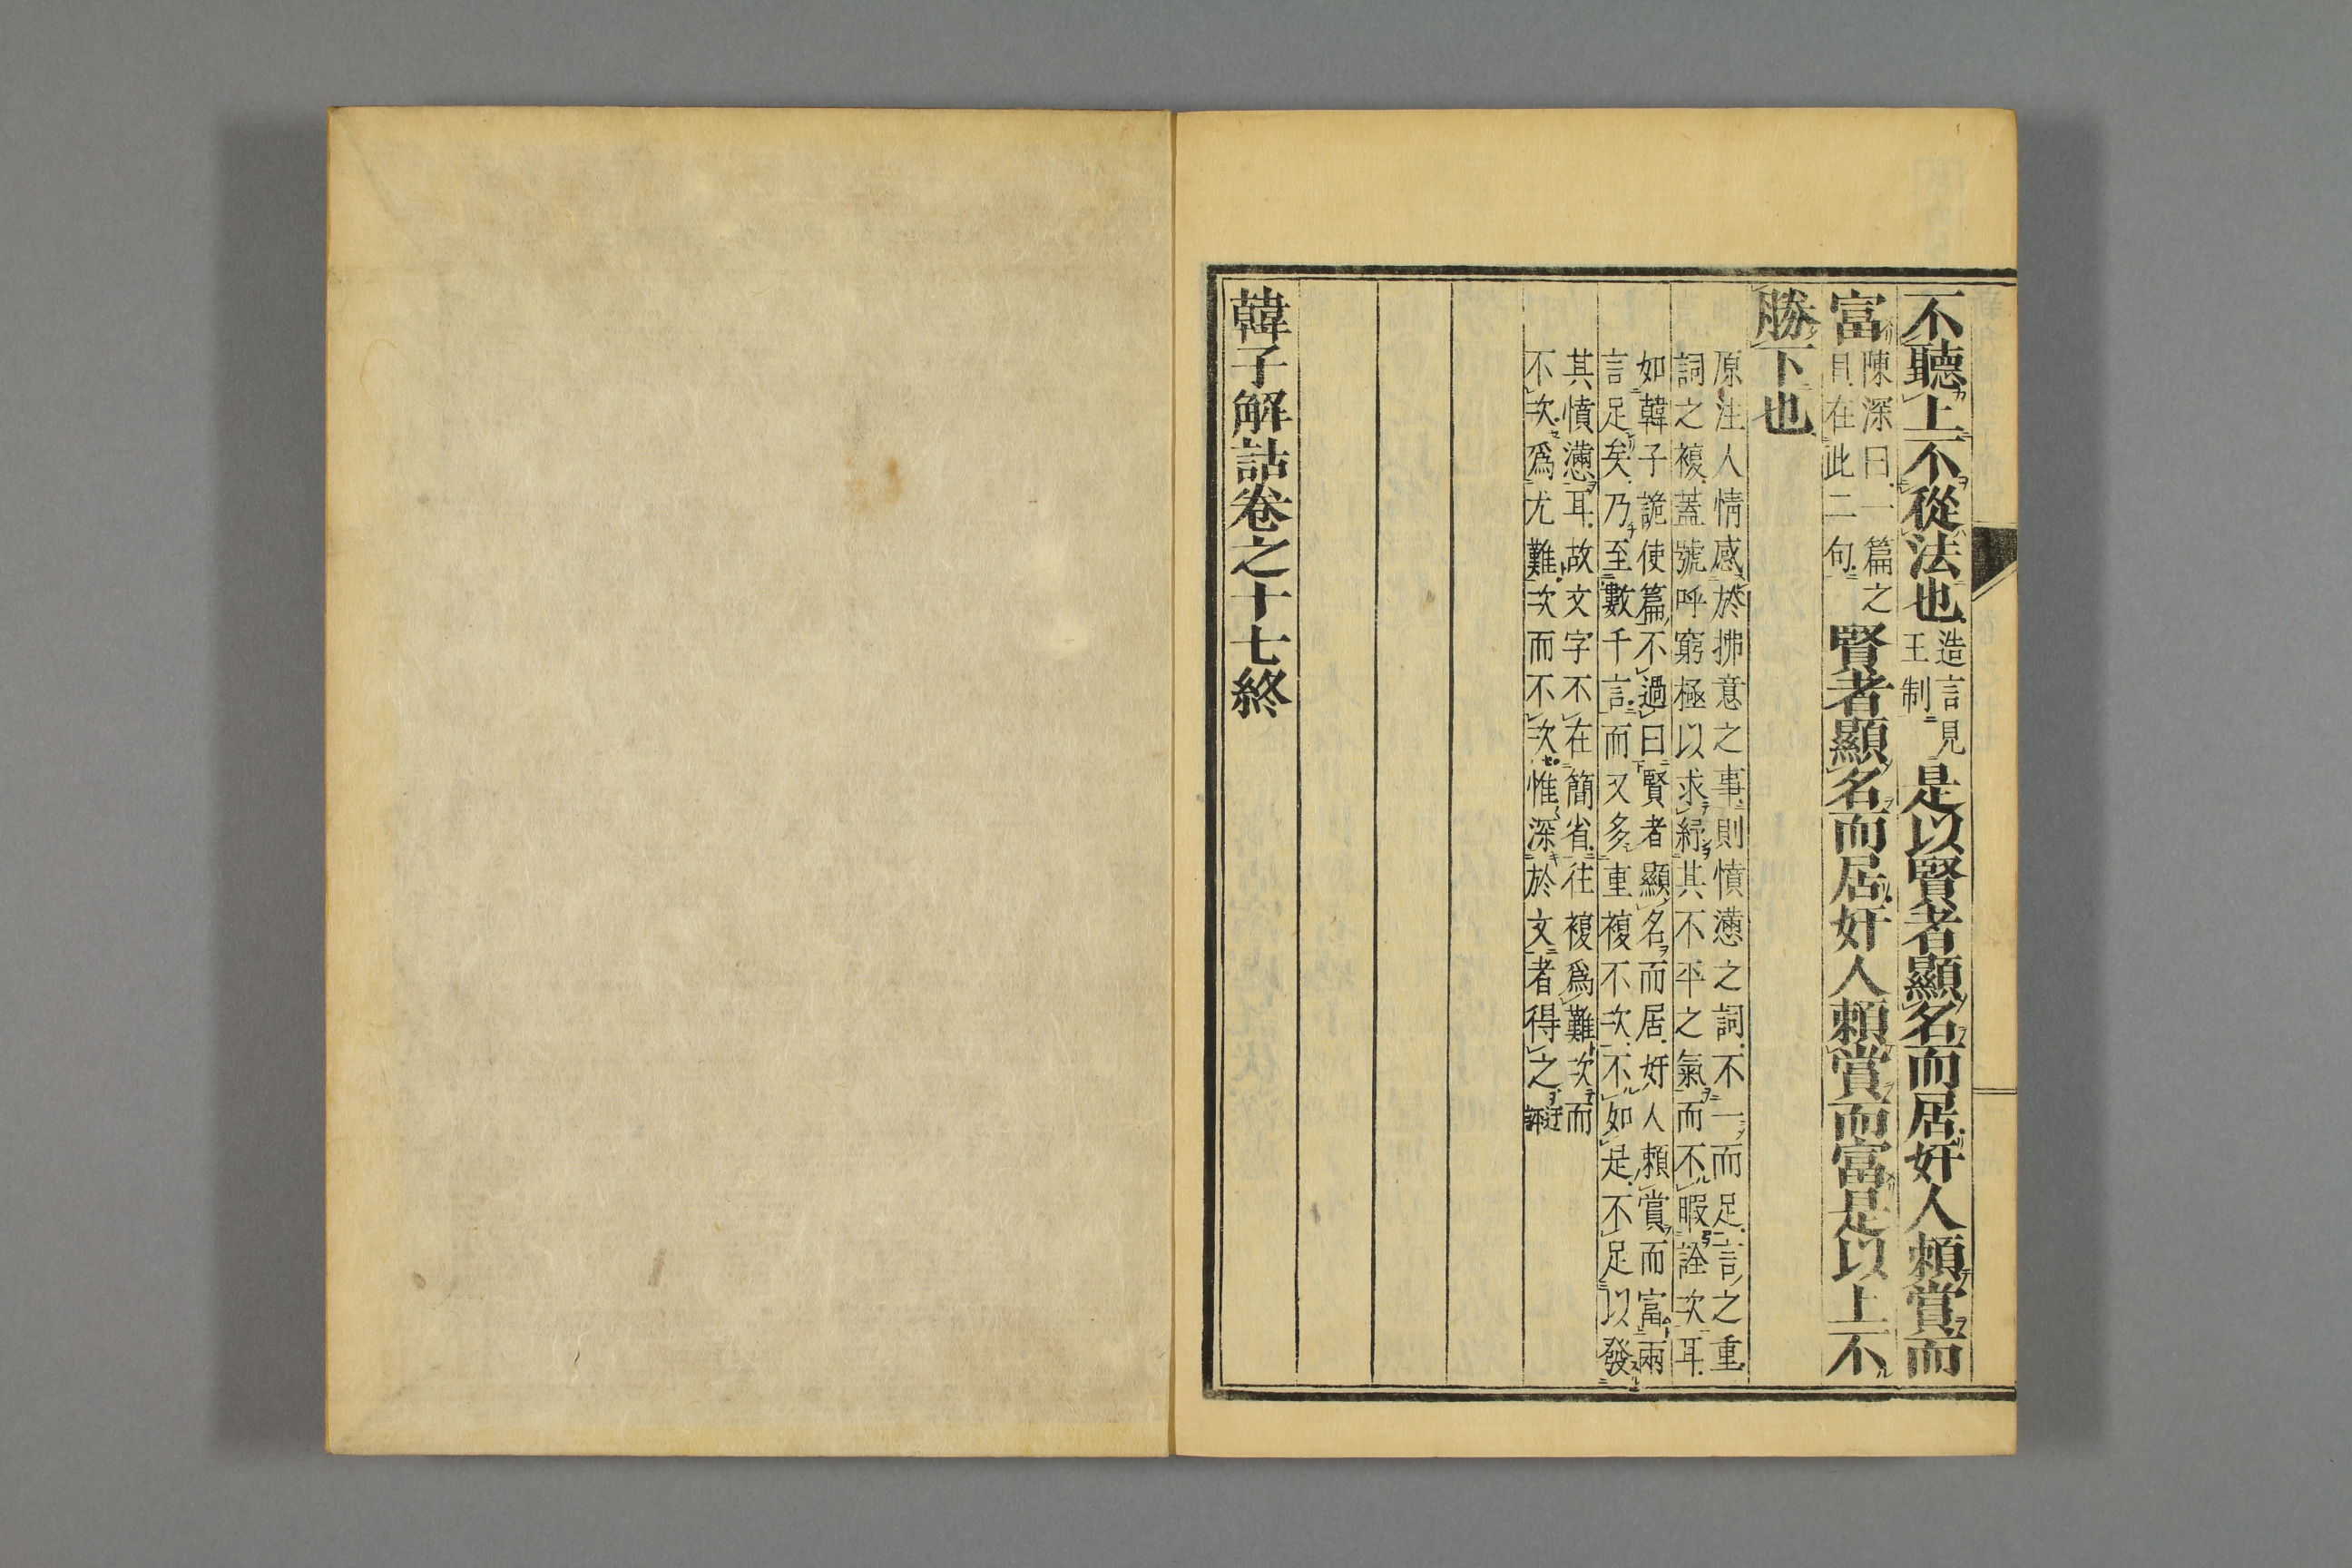 不聽上不從法也造言見王制是以賢者顯名而居奸人賴賞而
富陳深曰一篇之目在此二句賢者顯名而居奸人賴賞而富是以上不
勝下也
原注人情感於拂意之事則憤懣之詞不一而足言之重
詞之複蓋號呼窮極以求紓其不平之氣而不暇詮次耳
如韓子詭使篇不過曰賢者顯名而居奸人賴賞而富兩
言足矣乃至數千言而又多重複不次不如是不足以發
其憤懣耳故文字不在簡省往複爲難次而
不次爲尤難次而不次惟深於文者得之
韓子解詁卷之十七終